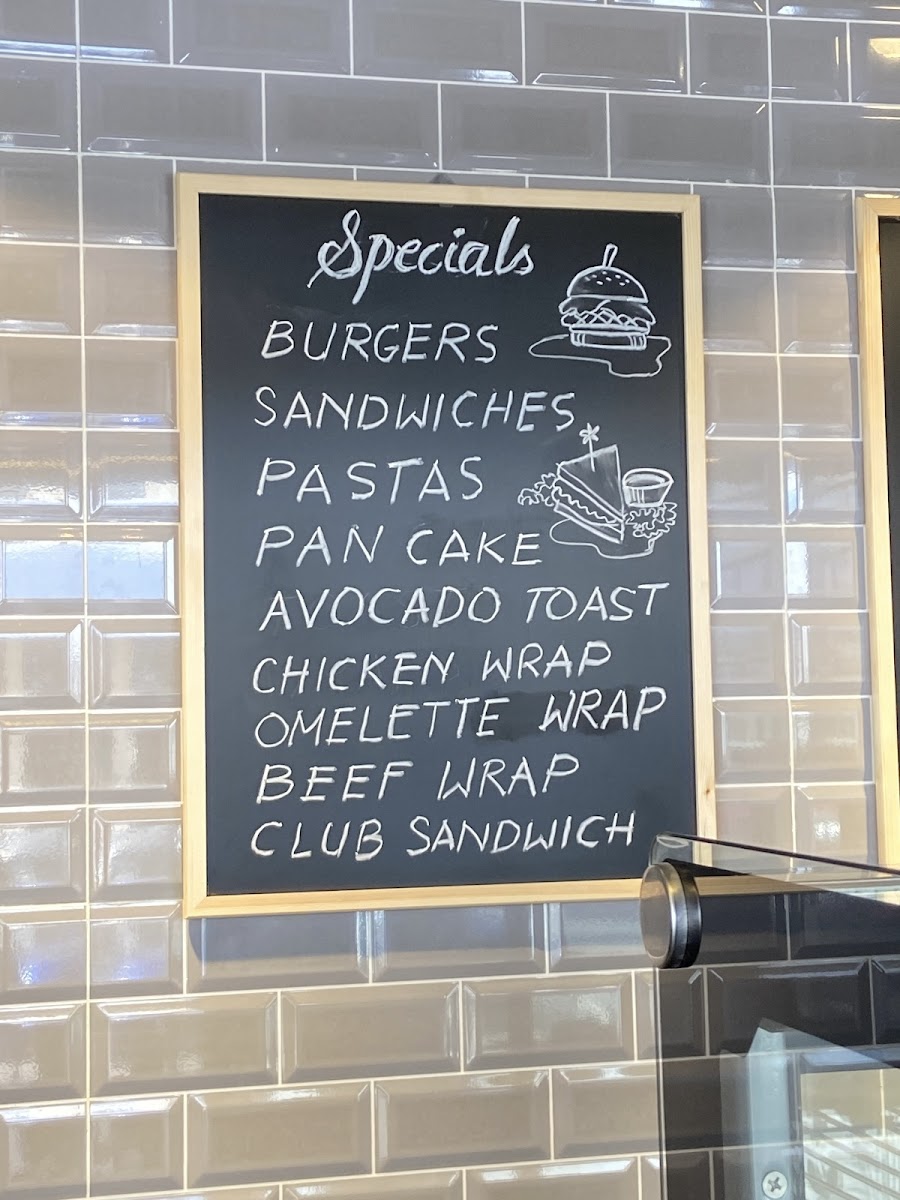 Specials
BURGERS
SANDWICHES
PASTAS
PAN CAKE
AVOCADO TOAST
CHICKEN WRAP
OMELETTE WRAP
BEEF WRAP
CLUB SANDWICH